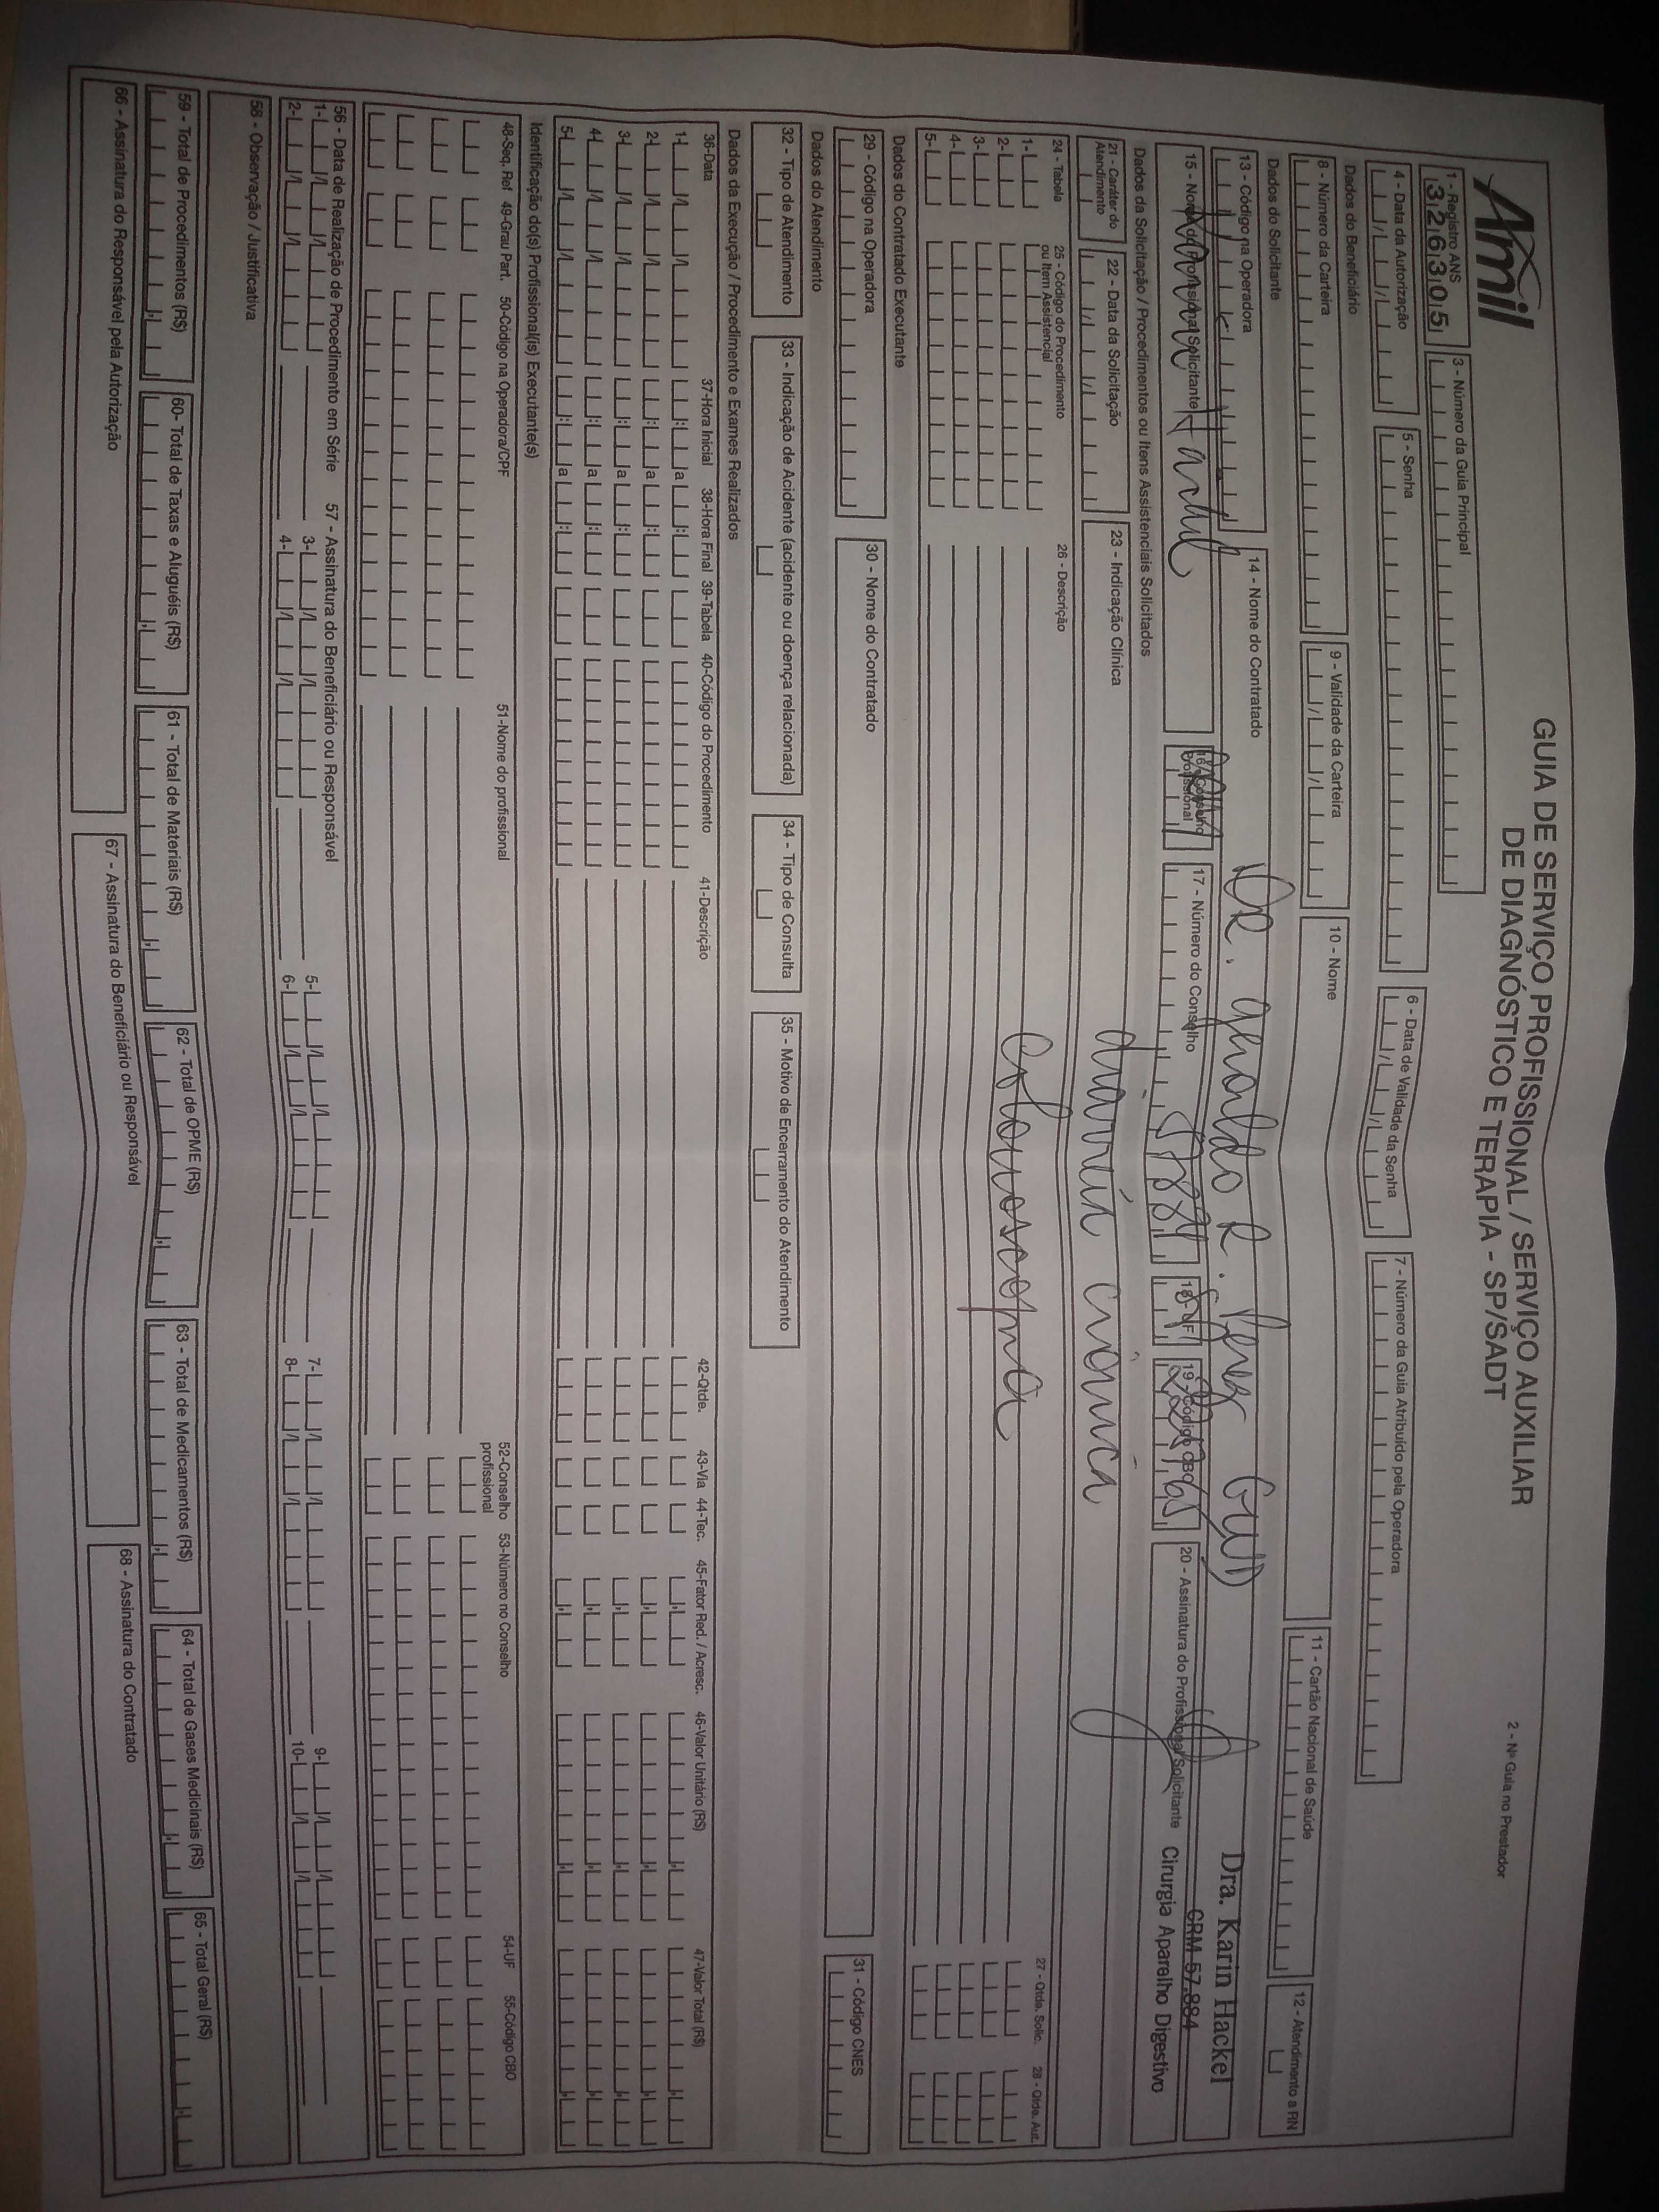 Amil
GUIA DE SERVIÇO PROFISSIONAL / SERVIÇO AUXILIAR
DE DIAGNÓSTICO E TERAPIA - SP/SADT
2 - Nº Guia no Prestador
1 - Registro ANS
326305
3 - Número da Guia Principal
4 - Data da Autorização
5 - Senha
6 - Data de Validade da Senha
7 - Número da Guia Atribuído pela Operadora
Dados do Beneficiário
8 - Número da Carteira
9 - Validade da Carteira
10 - Nome
11 - Cartão Nacional de Saúde
12 - Atendimento a RN
Dados do Solicitante
13 - Código na Operadora
14 - Nome do Contratado
Dr. Geraldo R.
Dra. Karin Hackel
CRM 57.884
Cirurgia Aparelho Digestivo
15 - Nome do Profissional Solicitante
Karin Hackel
16 - Conselho Profissional
CRM
17 - Número do Conselho
57884
18 - UF
SP
19 - Código CBO
20 - Assinatura do Profissional Solicitante
Dados da Solicitação / Procedimentos ou Itens Assistenciais Solicitados
21 - Caráter do Atendimento
22 - Data da Solicitação
23 - Indicação Clínica
diarréia crônica
24 - Tabela
25 - Código do Procedimento ou Item Assistencial
26 - Descrição
27 - Qtde. Solic.
28 - Qtde. Aut.
1-
Colonoscopia
2-
3-
4-
5-
Dados do Contratado Executante
29 - Código na Operadora
30 - Nome do Contratado
31 - Código CNES
Dados do Atendimento
32 - Tipo de Atendimento
33 - Indicação de Acidente (acidente ou doença relacionada)
34 - Tipo de Consulta
35 - Motivo de Encerramento do Atendimento
Dados da Execução / Procedimento e Exames Realizados
36-Data
37-Hora Inicial
38-Hora Final
39-Tabela
40-Código do Procedimento
41-Descrição
42-Qtde.
43-Via
44-Tec.
45-Fator Red. / Acresc.
46-Valor Unitário (R$)
47-Valor Total (R$)
1- a
2- a
3- a
4- a
5- a
Identificação do(s) Profissional(is) Executante(s)
48-Seq. Ref
49-Grau Part.
50-Código na Operadora/CPF
51-Nome do profissional
52-Conselho profissional
53-Número no Conselho
54-UF
55-Código CBO
56 - Data de Realização de Procedimento em Série
57 - Assinatura do Beneficiário ou Responsável
1- 3- 5- 7- 9-
2- 4- 6- 8- 10-
58 - Observação / Justificativa
59 - Total de Procedimentos (R$)
60- Total de Taxas e Aluguéis (R$)
61 - Total de Materiais (R$)
62 - Total de OPME (R$)
63 - Total de Medicamentos (R$)
64 - Total de Gases Medicinais (R$)
65 - Total Geral (R$)
66 - Assinatura do Responsável pela Autorização
67 - Assinatura do Beneficiário ou Responsável
68 - Assinatura do Contratado